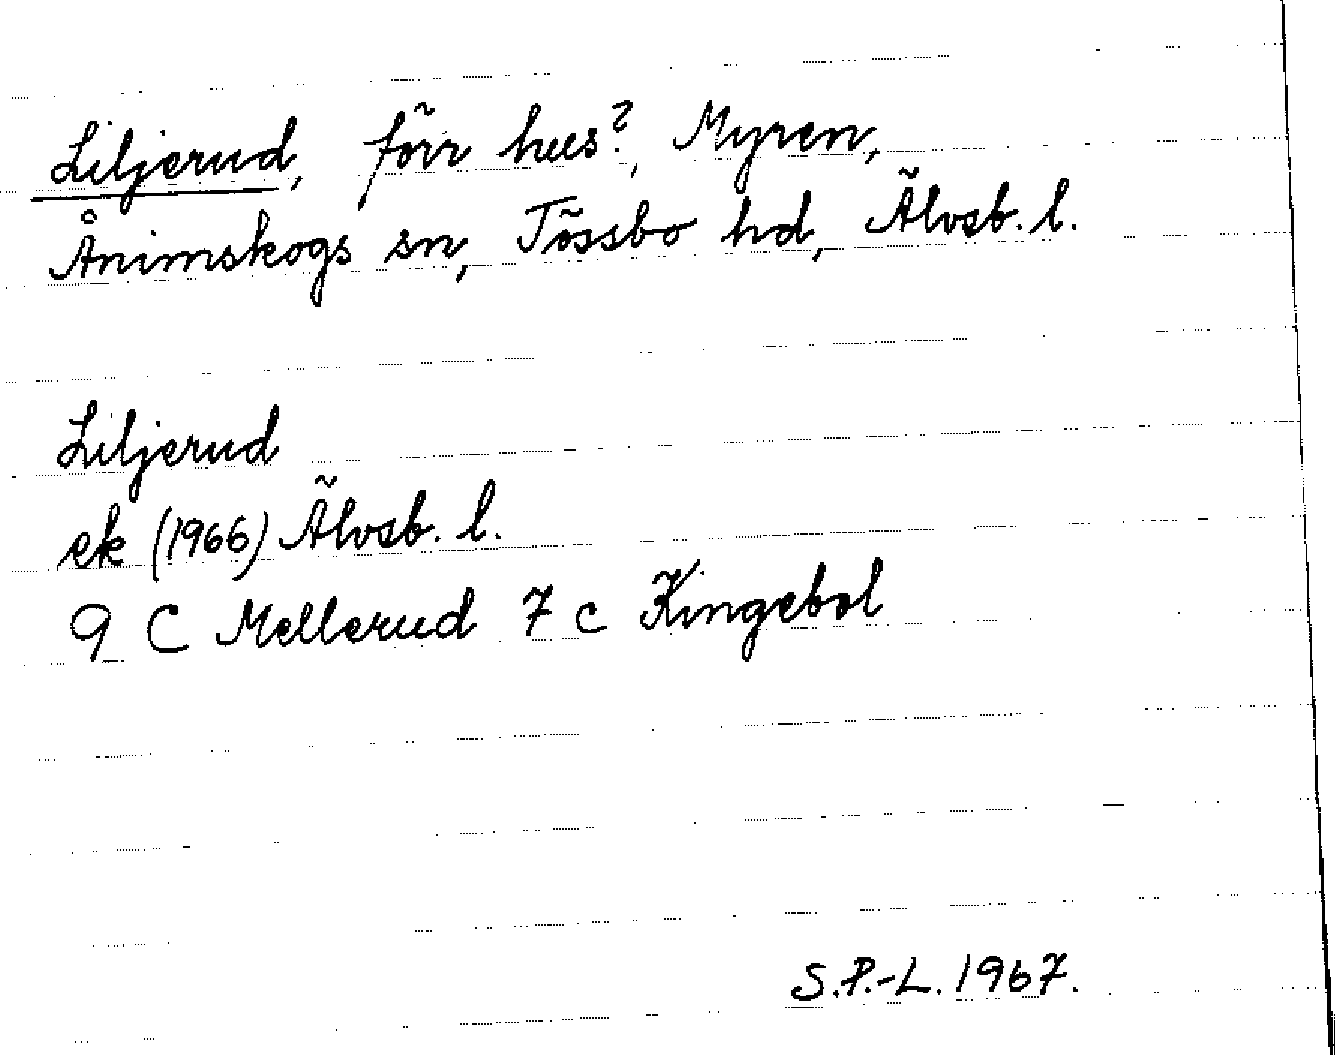 Liljerud, förr hus?, Myren,
Ånimskogs sn, Tössbo hd, Älvsb. l.
Liljerud
ek (1966) Älvsb. l.
9 C Mellerud 7 c Kingebol
S.P.-L. 1967.